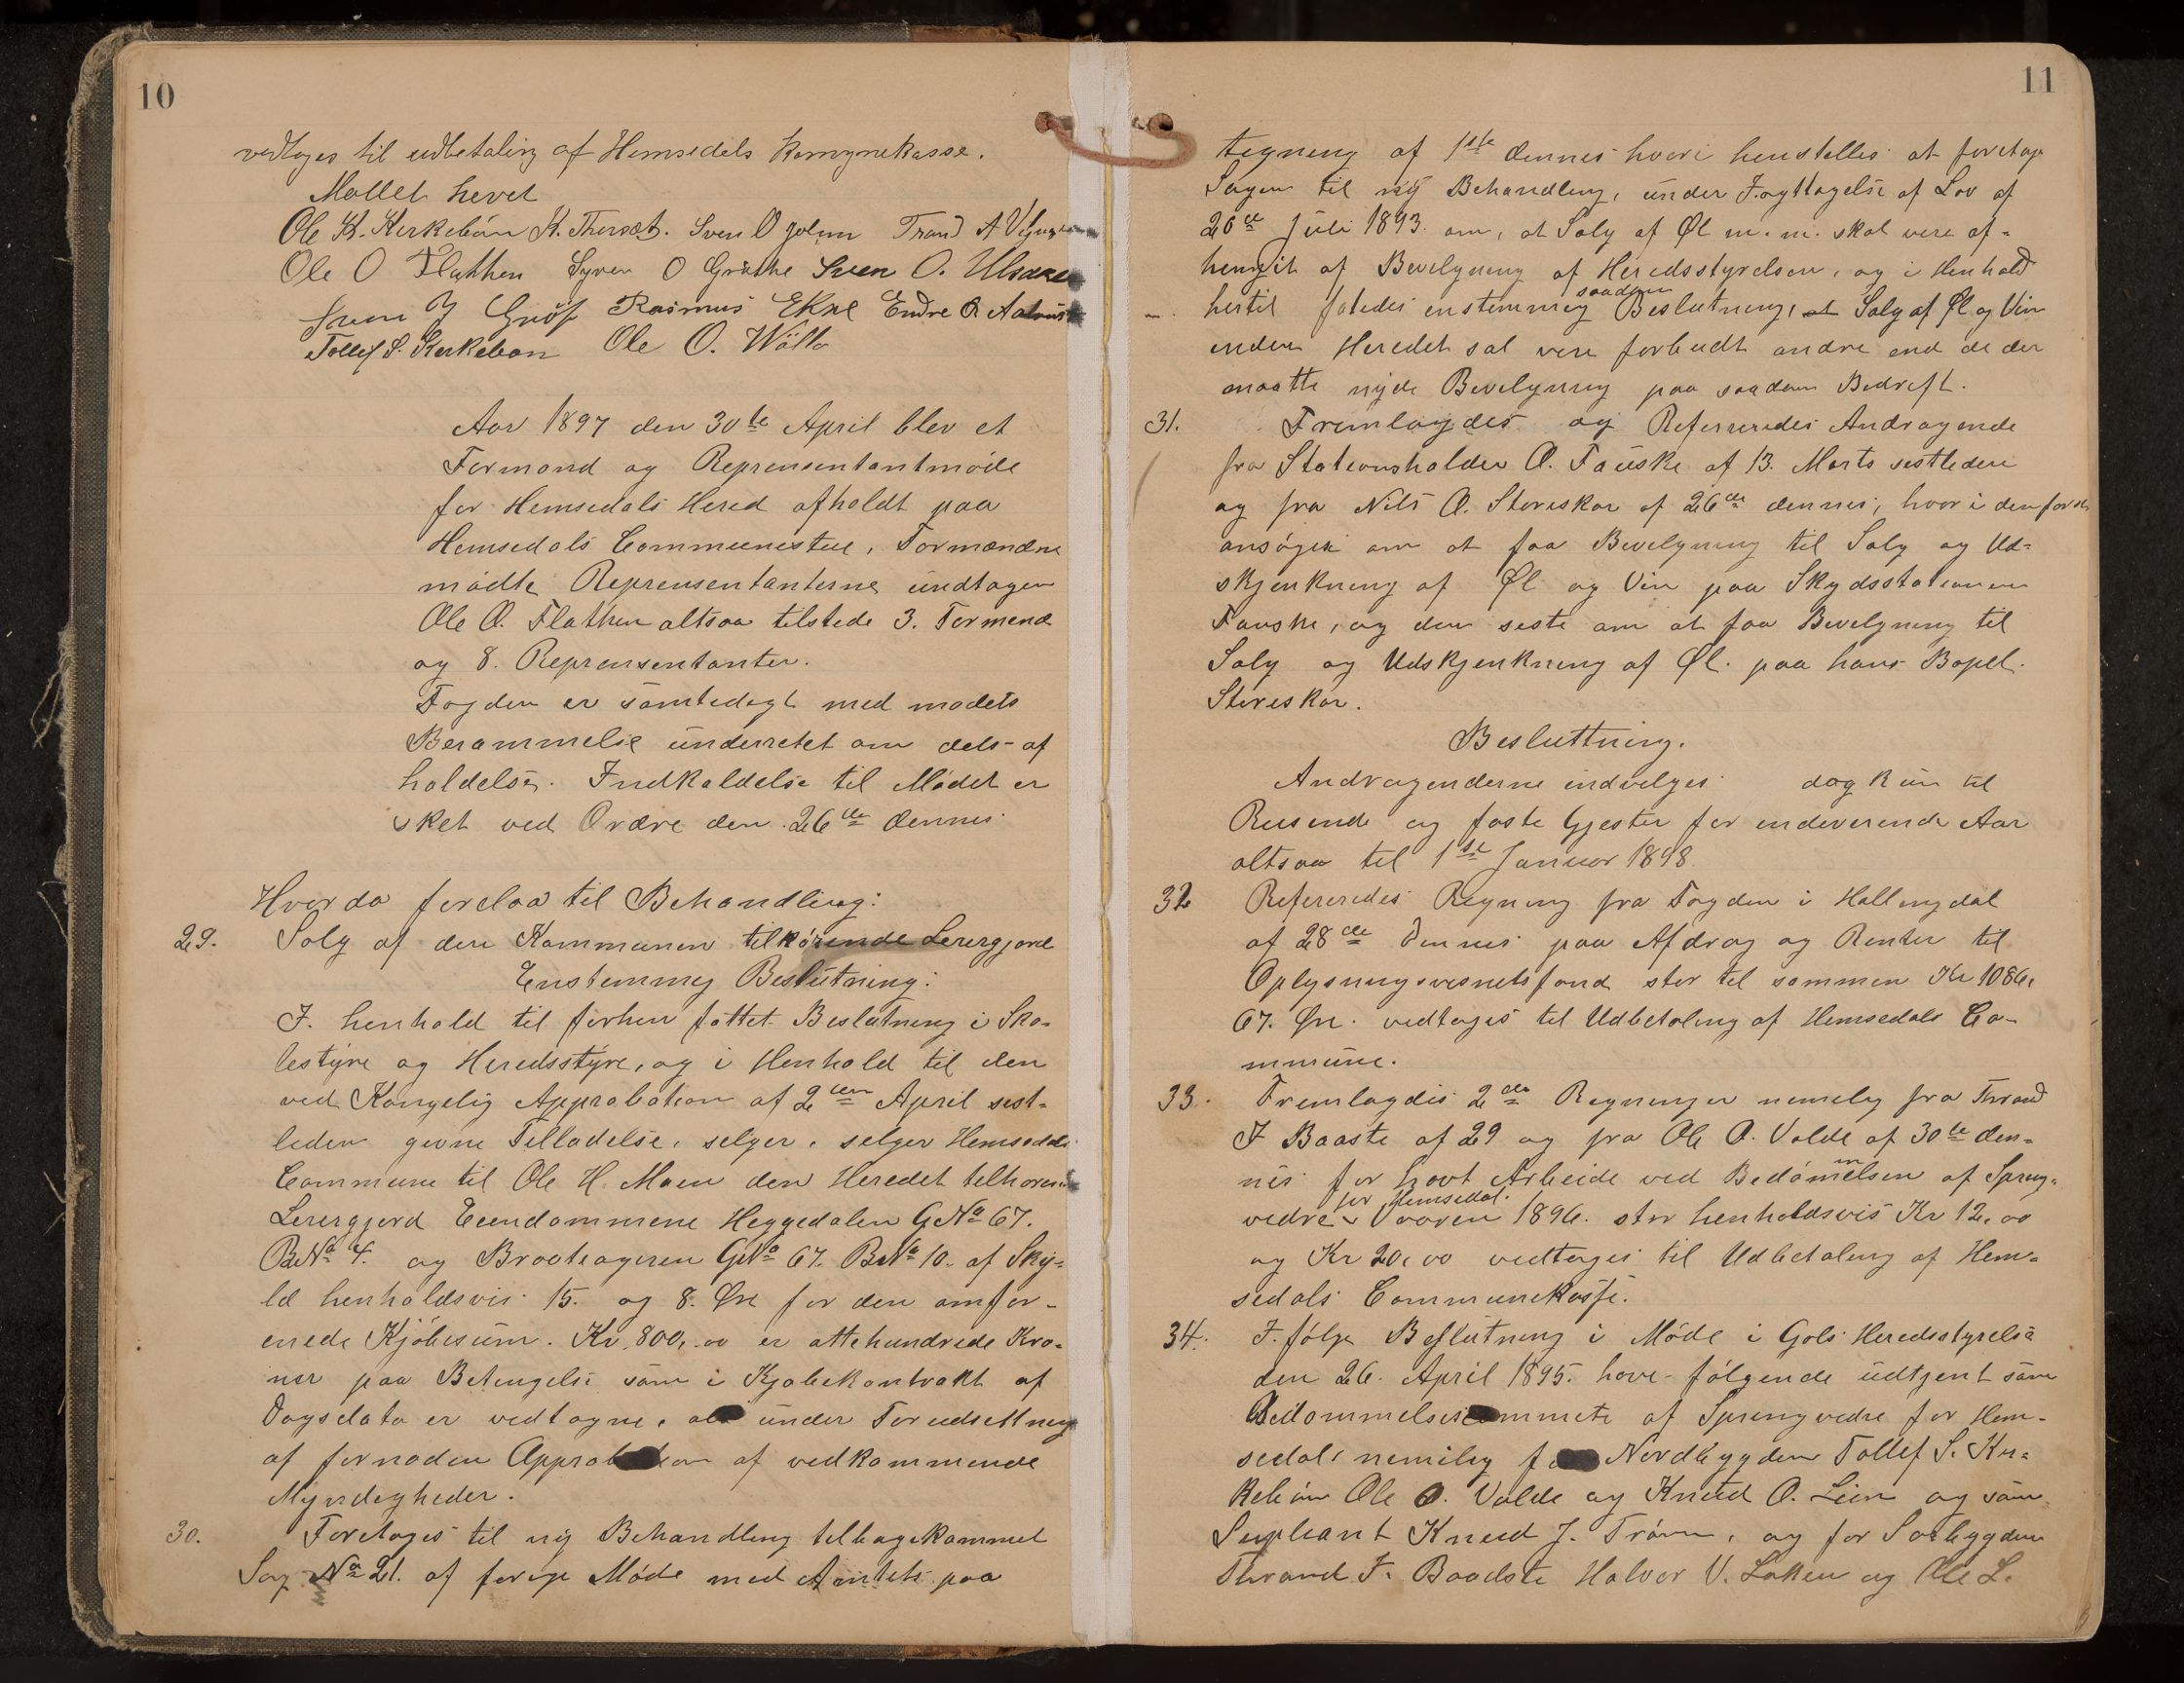 10
vedtages til udbetaling af Hemsedals Komynekasse.
Mødet hevet
Ole K. Kirkebøn K. Thorset. Sven O Jolum Trand A
Ole O Flathen Syver O Grøthe Sven O. Ulsaker
Sven J Grøf Rasmus Ekre Endre O
Tollef S. Kirkebøn Ole O. Wølla
Aar 1897 den 30te April blev et
Formand og Reprensentantmøde
for Hemsedals Hered afholdt paa
Hemsedals Communestue, Formændne
mødte Reprensentanterne undtagen
Ole O. Flathen altsaa tilstede 3. Formend
og 8. Reprensentanter.
Fogden er samtedigt med mødets
Berammelse underretet om dets af
holdelse. Indkaldelse til Mødet er
sket ved Ordre den 26de dennes.
Hvorda forelaa til Behandling:
29. Salg af den Kommunen tilhørende Lerergjord
Enstemmig Beslutning:
I. henhold til forhen fattet Beslutning i Sko-
lestyre og Heredsstyre, og i Henhold til den
ved Kongelig Approbation af 2den April sist-
leden givne Tilladelse, selger, selger Hemsedals
Commune til Ole H. Moen den Heredet tilhørende
Lerergjord Eiendommene Heggedalen GNo 67.
BNo 4. og Brooteageren GNo 67. BNo 10. af Sky-
ld henholdsvis 15. og 8. Øre for den omfor-
enede Kjøbesum. Kr. 800,.00 er ottehundrede Kro-
ner paa Betengelse som i Kjøbekontrakt af
Dagsdato er vedtagne, alt under Forudsettning
af fornøden Approbation af vedkommende
Myndigheder.
30. Foretages til ny Behandling tilbagekommet
Sag No 21. af forrige Møde med Amtets paa
11
tegning af 1ste dennes hvori henstilles at foretage
Sagen til ny Behandling, under Iagttagelse af Lov af
26de Juli 1893. om, at Salg af Øl m.m. skal vere af-
hengit af Bevilgning af Heredsstyrelsen, og i Henhold
hertil fatedes enstemmig saadan Beslutning, at Salg af Øl og Vin
inden Heredet sal vere forbudt andre end de der
maatte nyde Bevilgning paa saadan Bedreft.
31. Fremlagdes og Refereredes Andragende
fra Stationsholder O. Fauske af 13. Marts sistleden
og fra Nils O. Storeskar af 26de dennes, hvori den første
ansøger om at faa Bevilgning til Salg og Ud-
skjenkning af Øl og Vin paa Skydsstationen
Fauske, og den siste om at faa Bevilgning til
Salg og Udskjenkning af Øl. paa hans Bopel.
Storeskar.
Besluttning.
Andragenderne indvilges dog kun til
Reisende og faste Gjester for indeverende Aar
altsaa til 1ste Januar 1898.
32 Refereredes Regning fra Fogden i Hallingdal
af 28de dennes paa Afdrag og Renter til
Oplysningsvesnetsfond stor til sammen Kr 1086,
67. Øre. vedtages til Udbetaling af Hemsedals Co-
mmune.
33. Fremlagdes 2de Regninger nemelig fra Thrond
F Baaste af 29 og fra Ole O. Volde af 30te den-
nes for havt Arbeide ved Bedømmelsen af Spreng-
vedre for Hemsedal. Vaaren 1896. stor henholdsvis Kr 12,00
og Kr 20,00 vedtages til Udbetaling af Hem-
sedals Communekasse.
34. I. følge Beslutning i Møde i Gols Heredsstyrelse
den 26. April 1895. have følgende udtjent som
Bedømmelseskommete af Sprengvedre for Hem-
sedal, nemilig for Nordbygden Tollef S. Kir-
kebøn Ole O. Volde og Knud O. Lien og som
Supleant Knud J. Trøim, og for Sørbygden
Thrond F. Baadste Halvor V. Løken og Ole L.